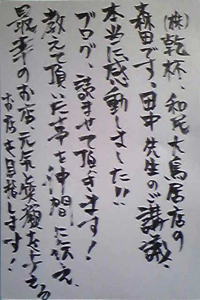 (株)乾杯、和民大鳥居店の
森田です。田中先生のご講議、
本当に感動しました!!
ブログ、読ませて頂きます!
教えて頂いた事を仲間に伝え、
最幸のお店、元気と笑顔を与える
お店を目指します!